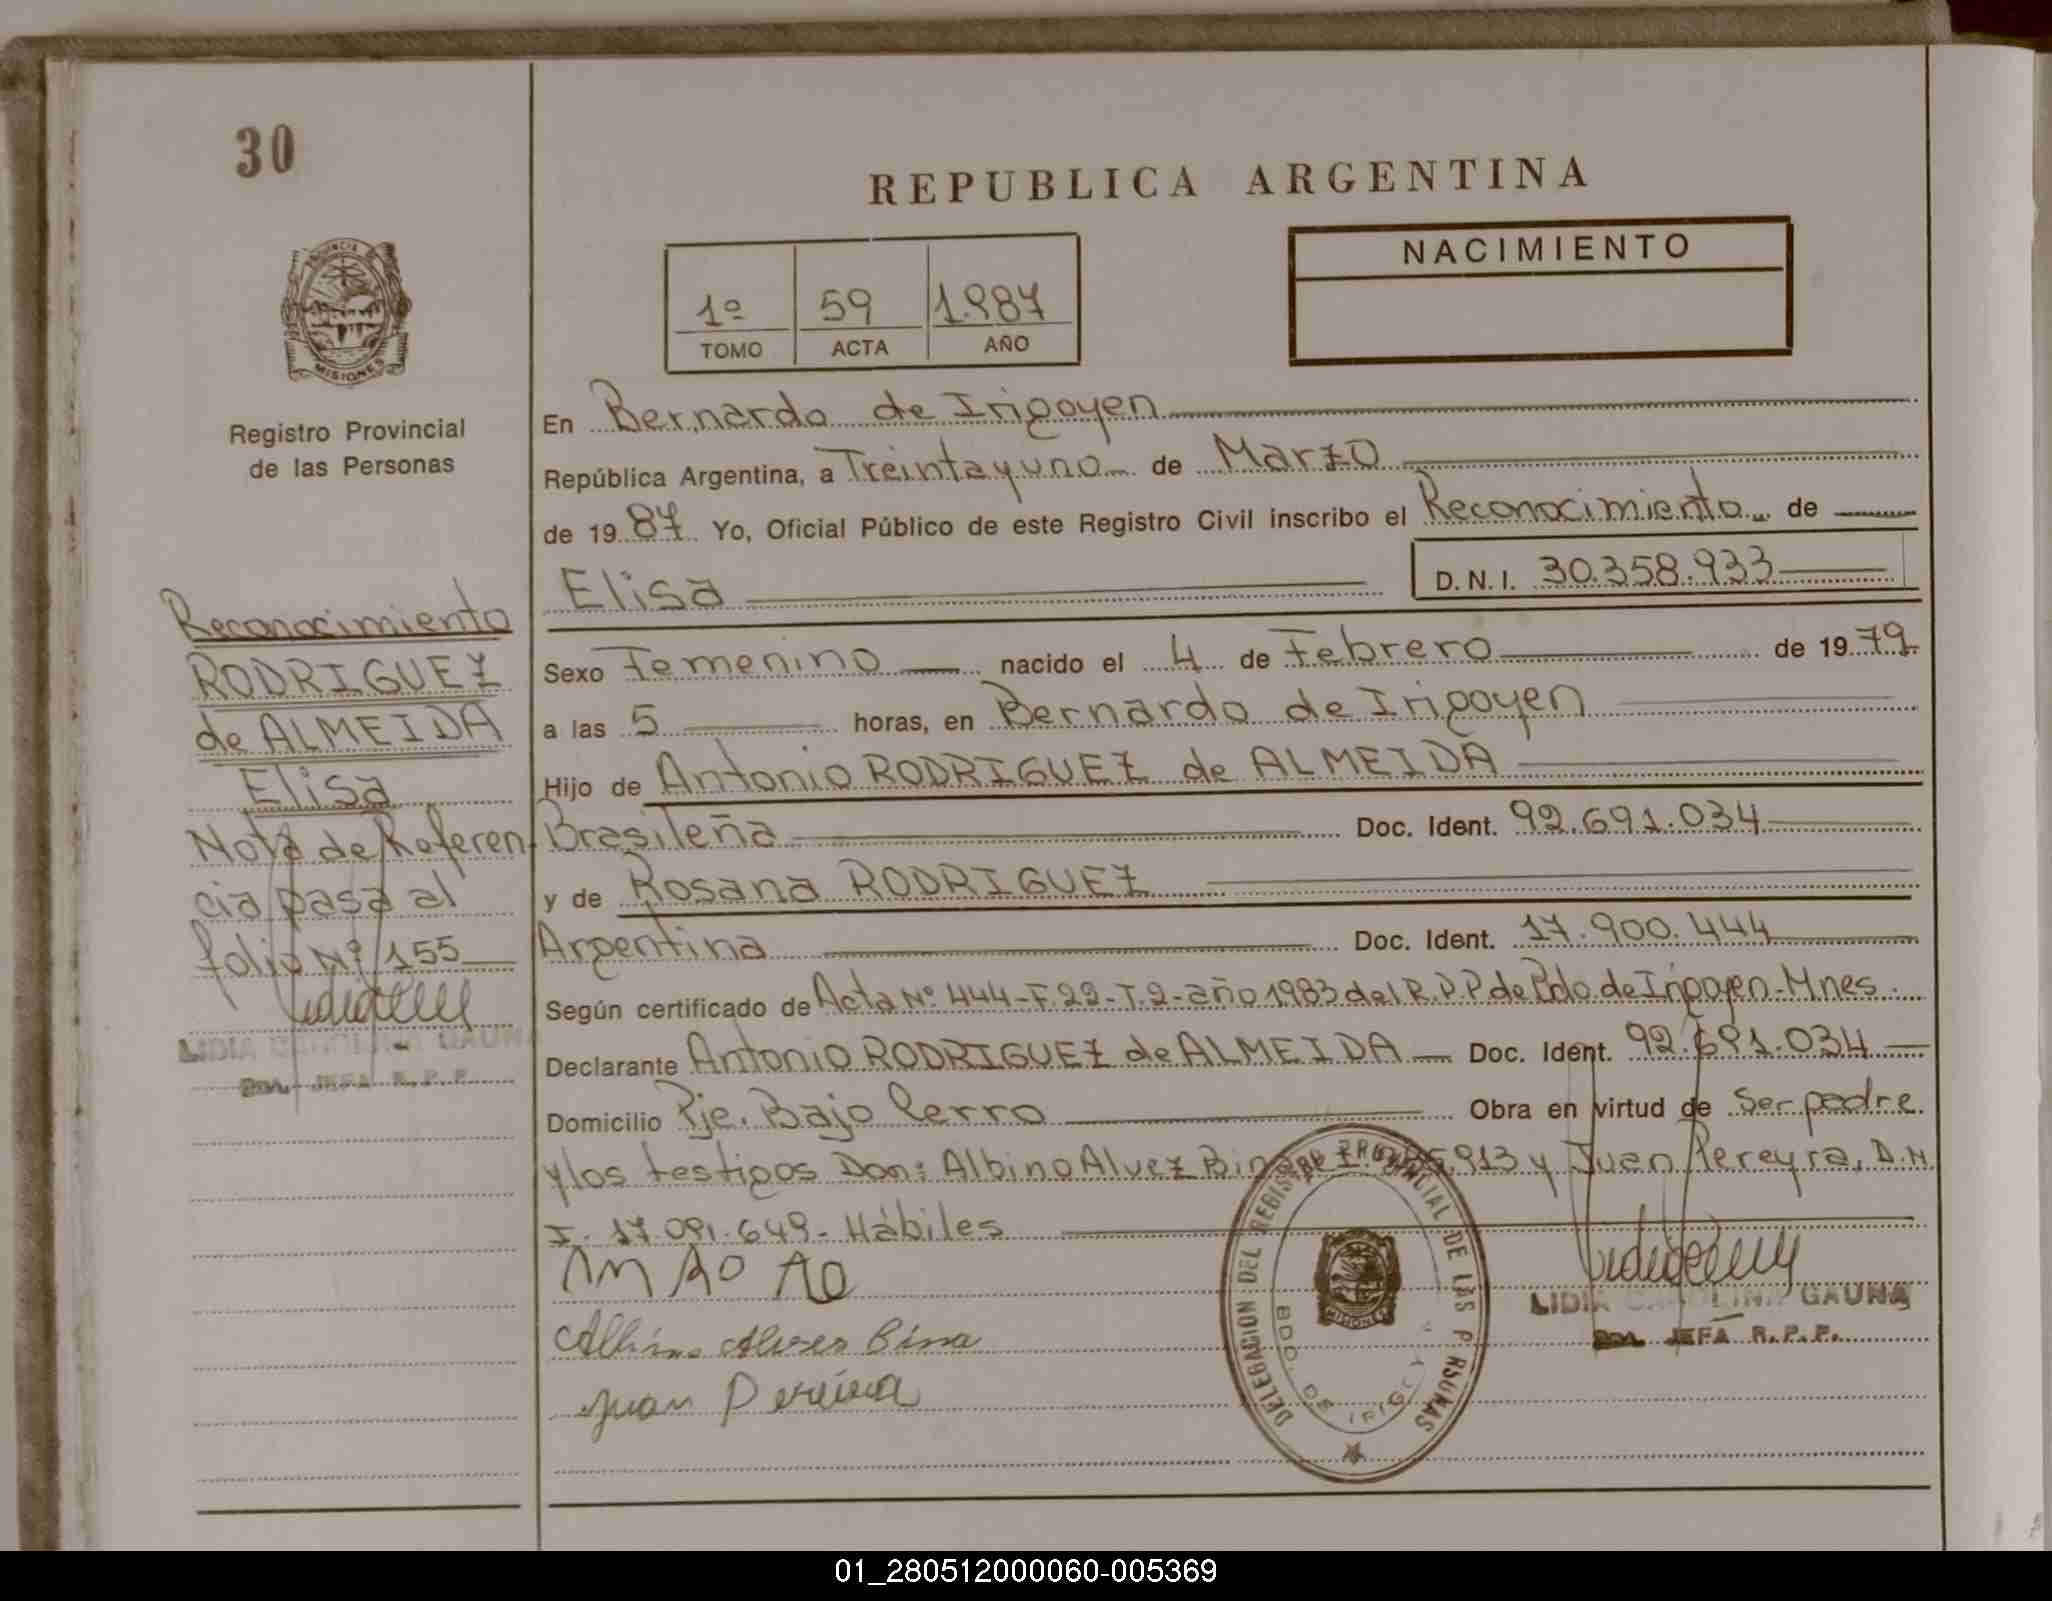 30
REPUBLICA ARGENTINA
NACIMIENTO
1º 59 1.987
TOMO ACTA AÑO
PROVINCIA
MISIONES
Registro Provincial
de las Personas
Reconocimiento
RODRIGUEZ
de ALMEIDA
Elisa
Nota de Referen-
cia pasa al
folio Nº 155
LIDIA CAROLINA GAUNA
JEFA R.P.P.
En Bernardo de Irigoyen
República Argentina, a Treinta y uno de Marzo
de 19 87 Yo, Oficial Público de este Registro Civil inscribo el Reconocimiento de
Elisa D.N.I. 30.358.933
Sexo Femenino nacido el 4 de Febrero de 19 79
a las 5 horas, en Bernardo de Irigoyen
Hijo de Antonio RODRIGUEZ de ALMEIDA
Brasileña Doc. Ident. 92.691.034
y de Rosana RODRIGUEZ
Argentina Doc. Ident. 17.900.444
Según certificado de Acta Nº 444-F.22-T.2-año 1983 del R.P.P de Bdo de Irigoyen-Mnes.
Declarante Antonio RODRIGUEZ de ALMEIDA Doc. Ident. 92.691.034
Domicilio Pje. Bajo Cerro Obra en virtud de Ser padre
y los testigos Don: Albino Alvez Bin 913 y Juan Pereyra, D.N.
I. 17.091.649- Hábiles
Albino Alves Bina
Juan Pereira
DELEGACION DEL REGISTRO PROVINCIAL DE LAS PERSONAS
BDO. DE IRIGOY
MISIONES
LIDIA CAROLINA GAUNA
JEFA R.P.P.
01_280512000060-005369